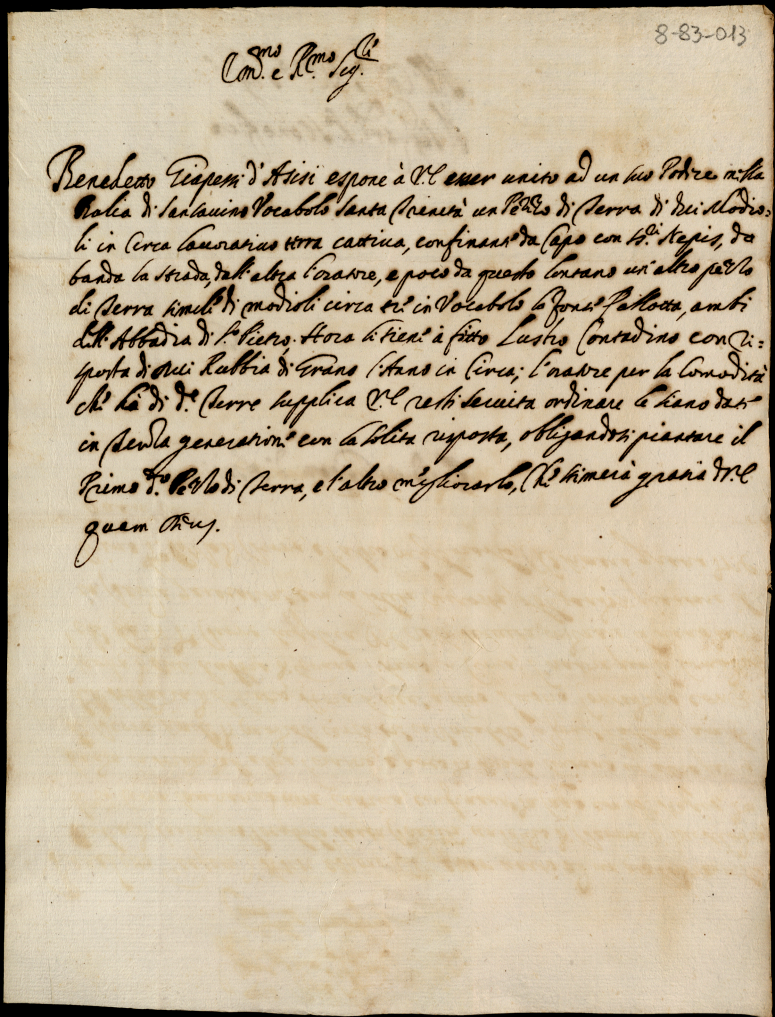 8-83-013
Em.mo e R.mo Sig.re
Benedetto Giapessi d'Asisi espone à V.E. esser unito ad un suo Podere nella
Balia di San Savino Vocabolo Santa Trinità un Pezzo di Terra di dieci Modio=
li in Circa lavorativo terra cattiva, confinante da Capo con Nepis, da
banda la strada, dall'altra l'oratore, e poco da questo lontano un'altro pezzo
di Terra simile di modioli circa tre in Vocabolo la fonte Pallotta, ambi
dell'Abbadia di S. Pietro. Hora li tiene à fitto Lustro Contadino con ri=
sposta di dieci Rubbia di Grano l'Anno in Circa; l'oratore per la Comodità
che hà di d.e Terre supplica V.E. resti servita ordinare le siano date
in terza generatione con la solita risposta, obligandosi piantare il
Primo d.o Pezzo di Terra, e l'altro megliorarlo, che stimerà gratia di V.E.
quam Deus.